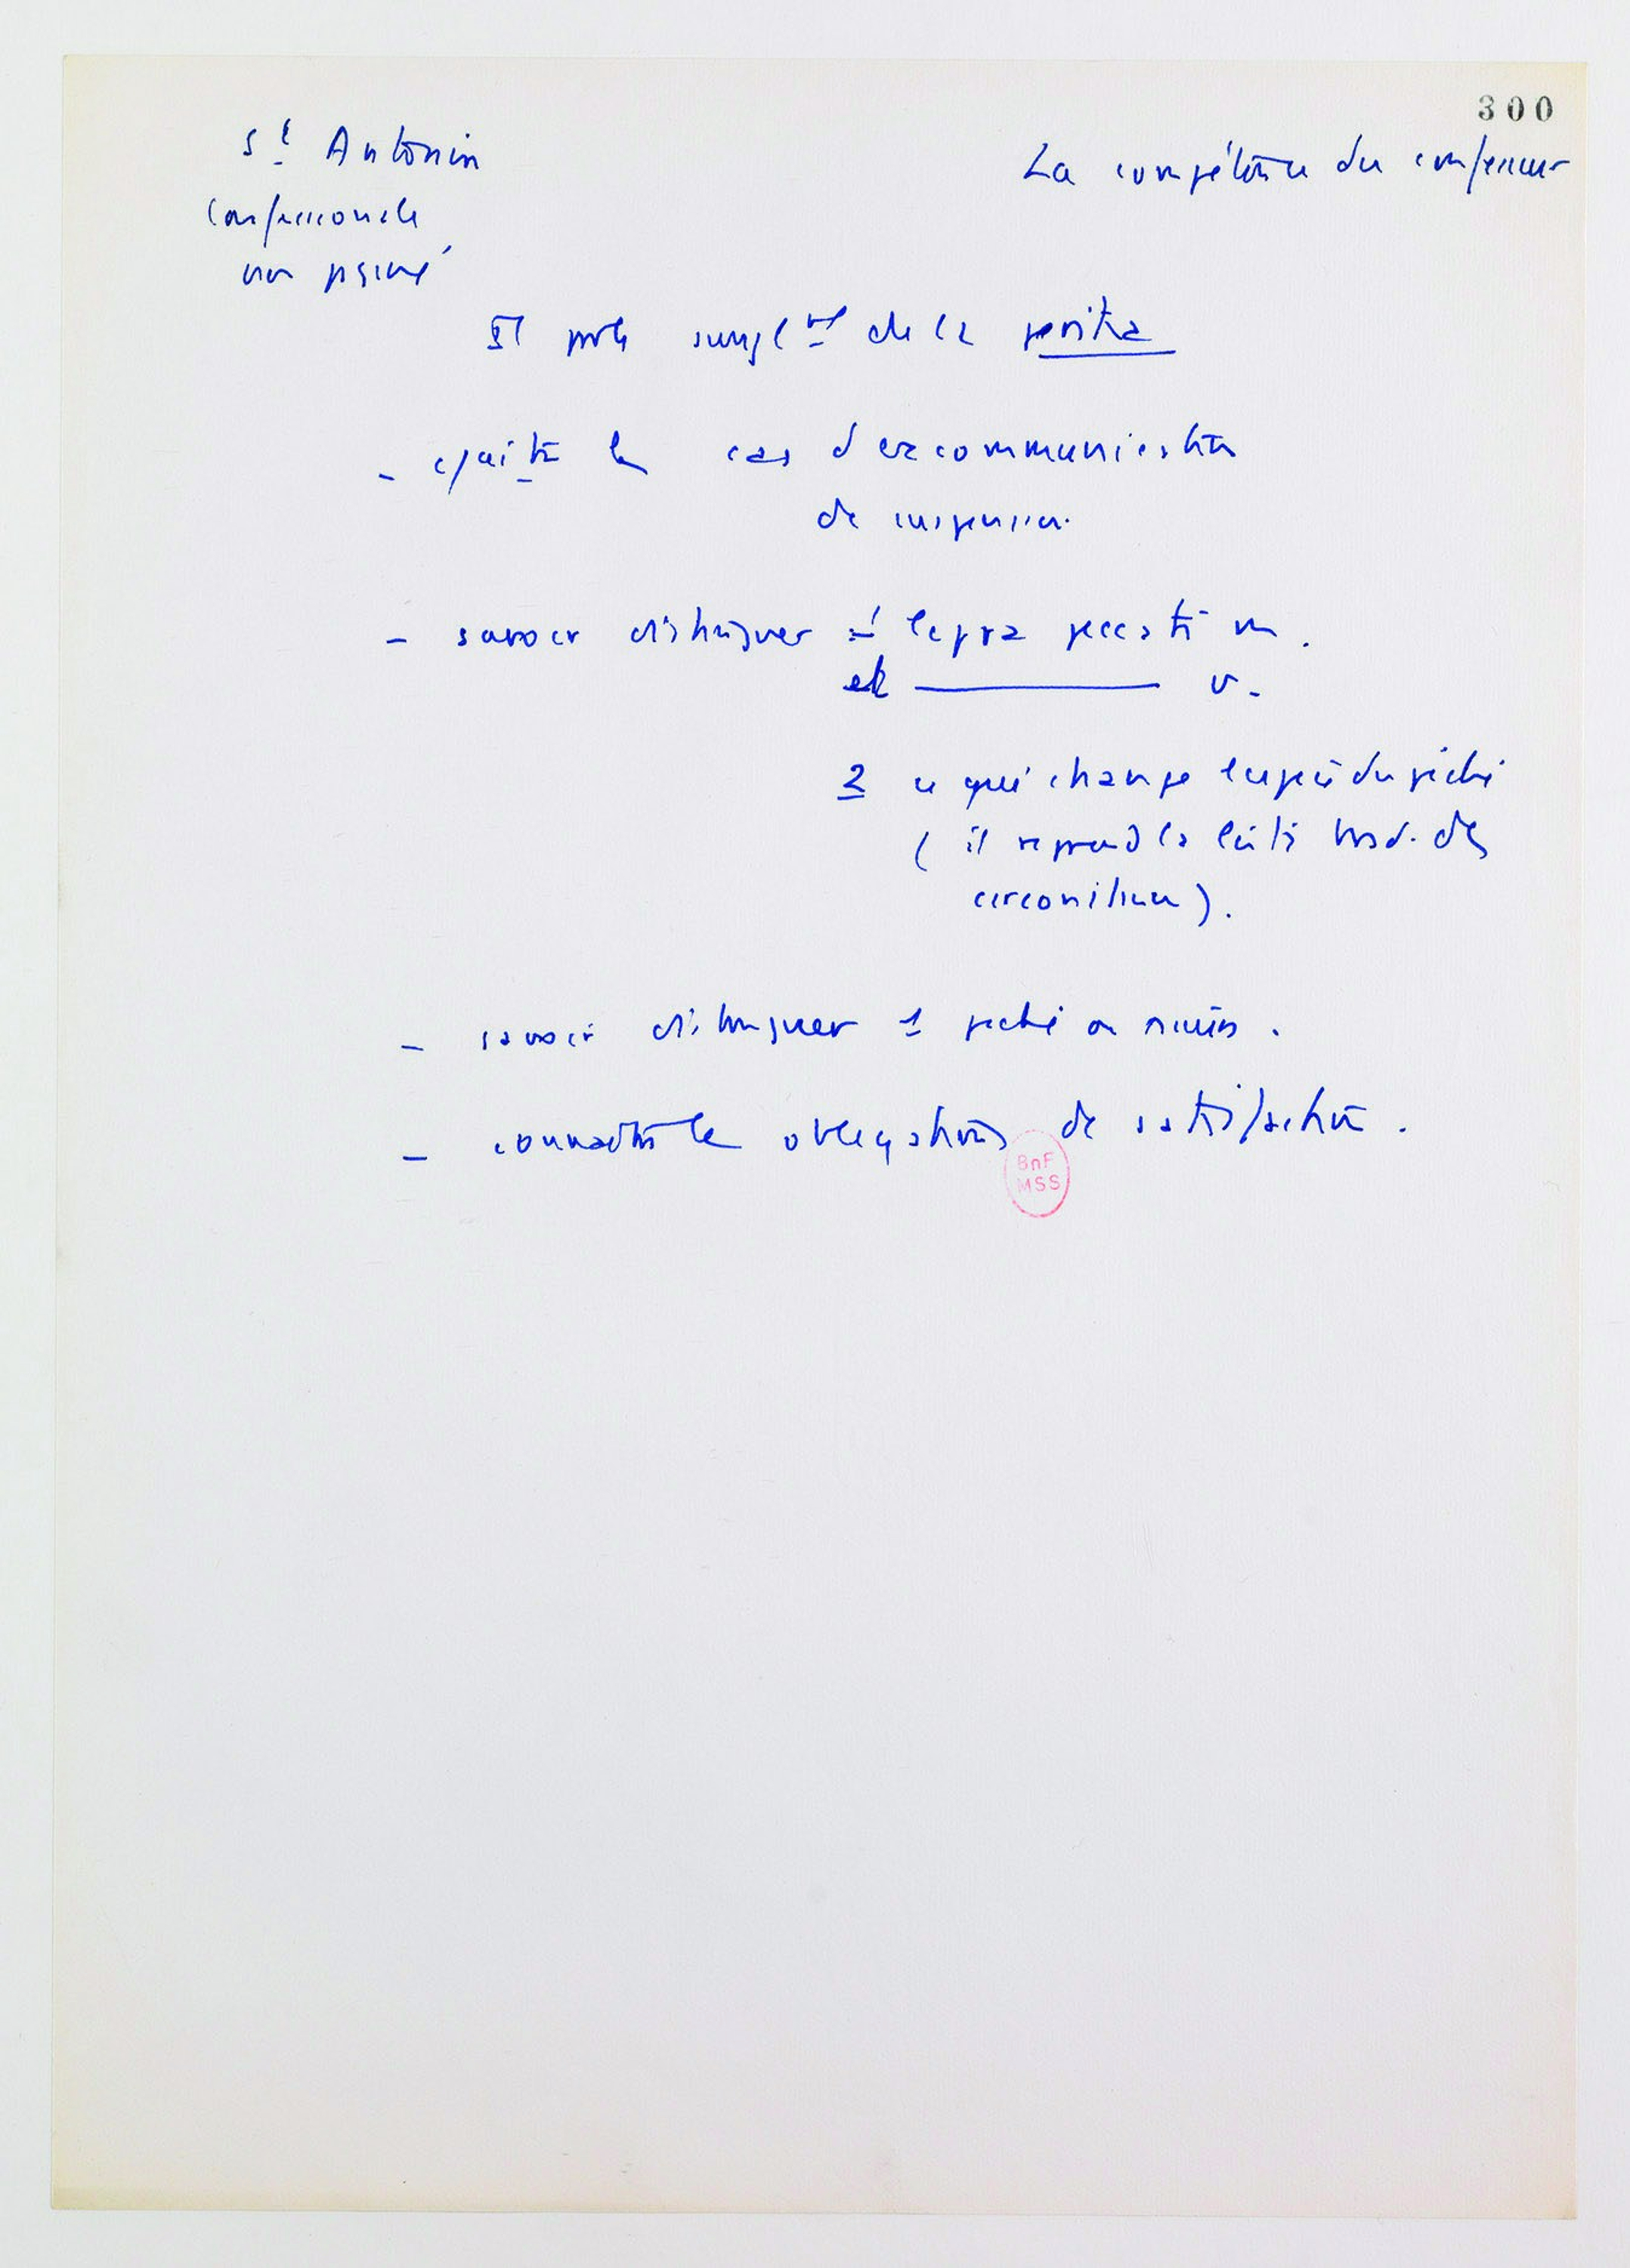 300
St Antonin
La compétence du confesseur
Confessionale
non paginé
Il parle simplt de la peritia
- les cas d'excommunication
de suspension.
- savoir distinguer 1 lepra peccati m.
et ——— v.
2 ce qui change l'espèce du péché
(il reprend la liste trad. des
circonstances).
- savoir distinguer 1 péché ou
- connaître les obligations de satisfaction.
BnF
MSS